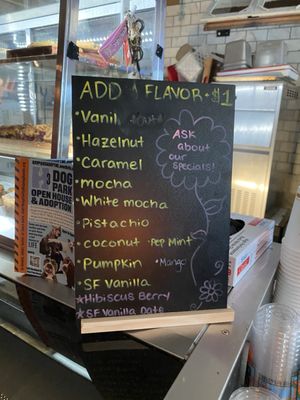 ADD A FLAVOR • $1
• Hazelnut
• Caramel
• mocha
• White mocha
• Pistachio
• coconut • Pep Mint
• Pumpkin • Mango
• SF Vanilla
Hibiscus Berry
SF Vanilla Oats
ASK
about
our
specials!
DOG
PARK
OPEN HOUSE
& ADOPTION